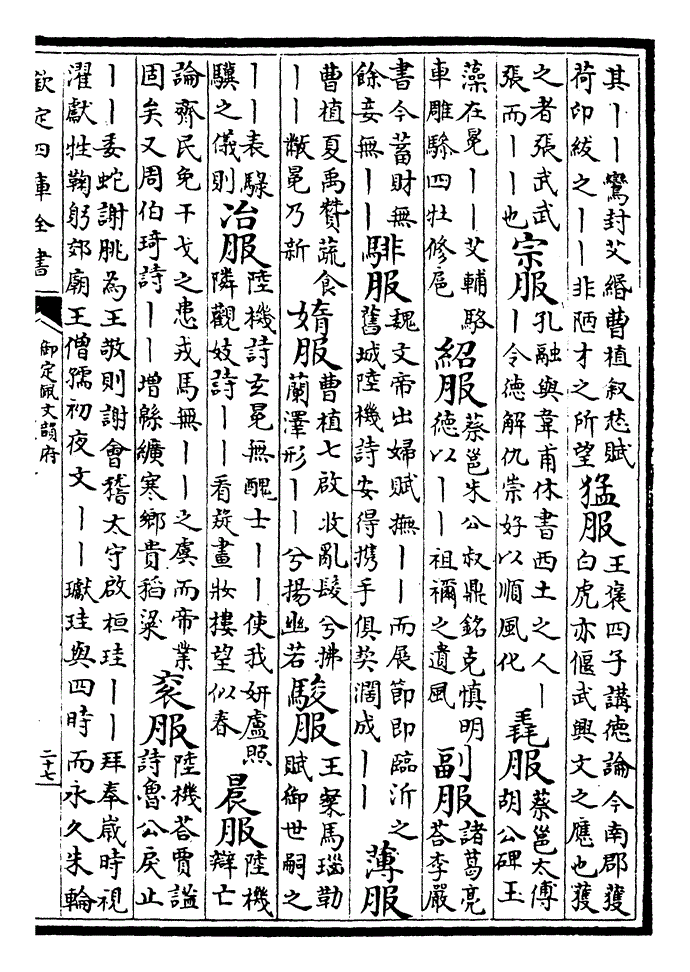 其丨丨鸞封艾緡曹植叙愁賦
荷印紱之丨丨非陋才之所望
猛服
王褒四子講德論今南郡獲
白虎亦偃武興文之應也獲
之者張武武
張而丨丨也
宗服
孔融與韋甫休書西土之人丨
丨令德解仇崇好以順風化
毳服
蔡邕太傅
胡公碑玉
藻在冕丨丨艾輔駱
車雕驂四牡修扈
紹服
蔡邕朱公叔鼎銘克慎明
德以丨丨祖禰之遺風
副服
諸葛亮
荅李嚴
書今蓄財無
餘妾無丨丨
騑服
魏文帝出婦賦撫丨丨而展節即臨沂之
舊城陸機詩安得携手俱契闊成丨丨
薄服
曹植夏禹贊蔬食
丨丨黻冕乃新
媠服
曹植七啟收亂髮兮拂
蘭澤形丨丨兮揚幽若
駿服
王粲馬瑙勒
賦御世嗣之
丨丨表騄
驥之儀則
冶服
陸機詩玄冕無醜士丨丨使我妍盧照
隣觀妓詩丨丨看旋畫妝樓望似春
晨服
陸機
辯亡
論齊民免干戈之患戎馬無丨丨之虞而帝業
固矣又周伯琦詩丨丨增緜纊寒鄉貴稻粱
衮服
陸機荅賈謐
詩魯公戾止
丨丨委蛇謝朓為王敬則謝會稽太守啟桓珪丨丨拜奉嵗時視
濯獻牲鞠躬郊廟王僧孺初夜文丨丨瓛珪與四時而永久朱輪
欽定四庫全書
御定佩文韻府
二十七